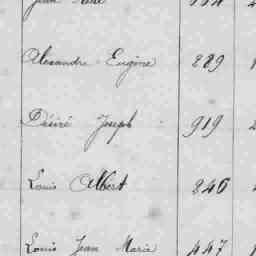 Alexandre Eugène 889
Désiré Joseph 919
Louis Albert 846
Louis Jean Marie 447